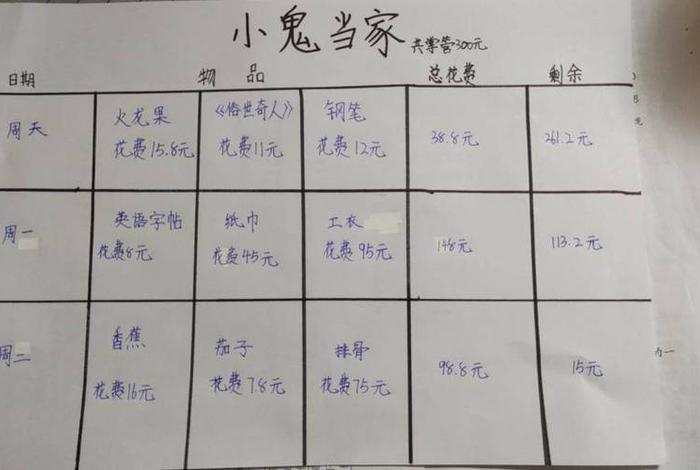 小鬼当家 共掌管300元
日期 物品 总花费 剩余
周天
火龙果
花费15.8元
《俗世奇人》
花费11元
钢笔
花费12元
38.8元
261.2元
周一
英语字帖
花费8元
纸巾
花费45元
工衣
花费95元
148元
113.2元
周二
香蕉
花费16元
茄子
花费7.8元
排骨
花费75元
98.8元
15元